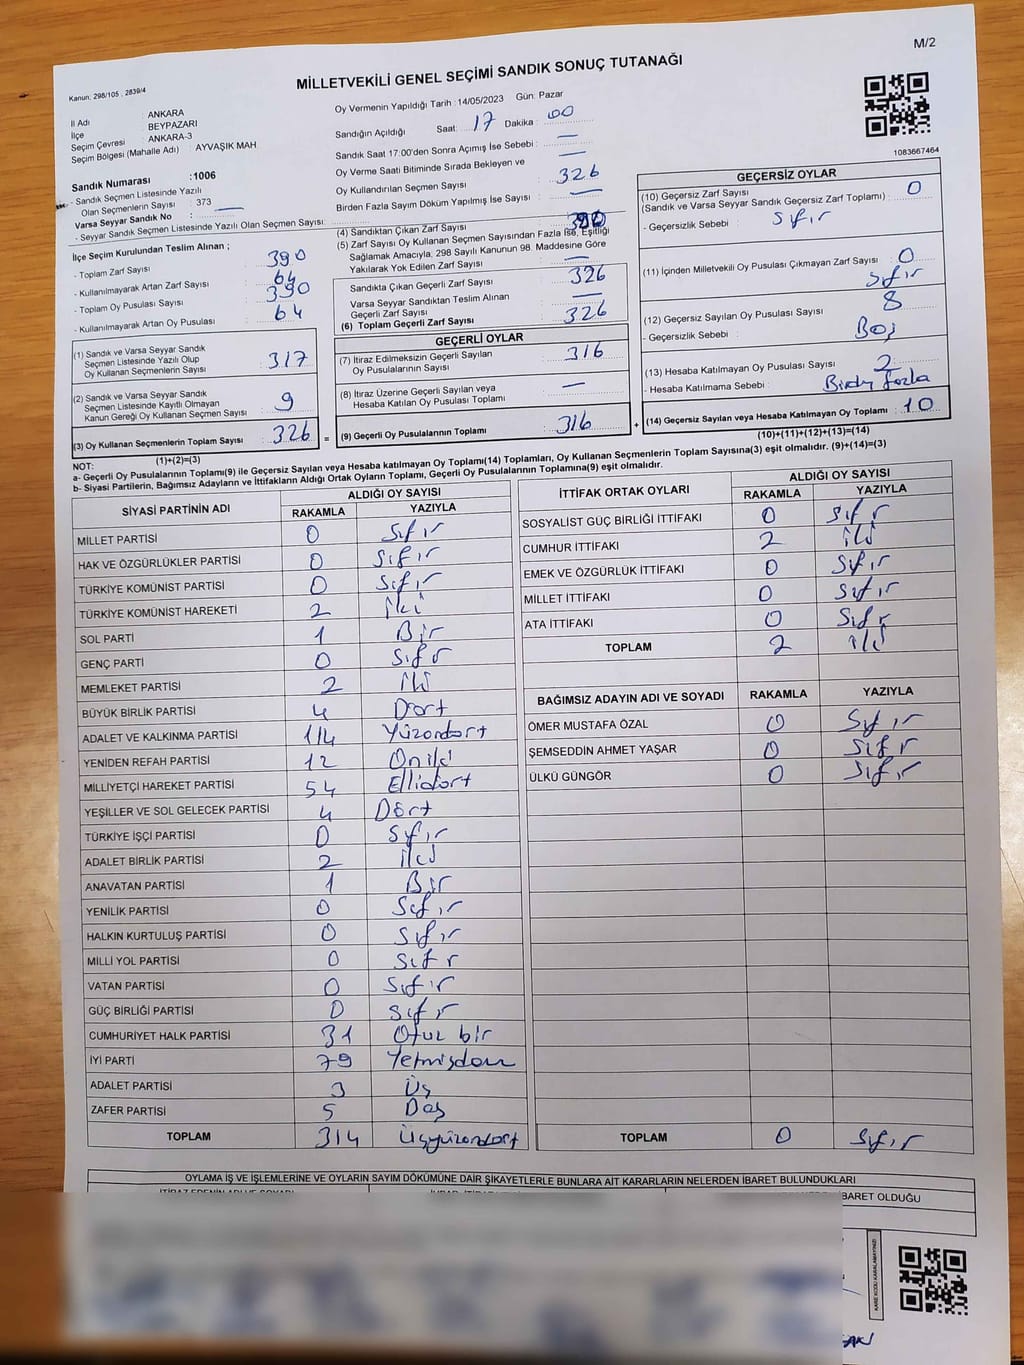 M/2
MİLLETVEKİLİ GENEL SEÇİMİ SANDIK SONUÇ TUTANAĞI
Kanun: 298/105 , 2839/4
İl Adı : ANKARA
İlçe : BEYPAZARI
Seçim Çevresi : ANKARA-3
Seçim Bölgesi (Mahalle Adı) : AYVAŞIK MAH
Sandık Numarası :1006
- Sandık Seçmen Listesinde Yazılı
Olan Seçmenlerin Sayısı : 373
Varsa Seyyar Sandık No :
- Seyyar Sandık Seçmen Listesinde Yazılı Olan Seçmen Sayısı:
Oy Vermenin Yapıldığı Tarih :14/05/2023 Gün: Pazar
Sandığın Açıldığı Saat: 17 Dakika : 00
Sandık Saat 17:00'den Sonra Açımış İse Sebebi : —
Oy Verme Saati Bitiminde Sırada Bekleyen ve —
Oy Kullandırılan Seçmen Sayısı : 326
Birden Fazla Sayım Döküm Yapılmış İse Sayısı : —
1083667464
İlçe Seçim Kurulundan Teslim Alınan ;
- Toplam Zarf Sayısı : 390
- Kullanılmayarak Artan Zarf Sayısı : 64
- Toplam Oy Pusulası Sayısı : 390
- Kullanılmayarak Artan Oy Pusulası : 64
(1) Sandık ve Varsa Seyyar Sandık
Seçmen Listesinde Yazılı Olup
Oy Kullanan Seçmenlerin Sayısı : 317
(2) Sandık ve Varsa Seyyar Sandık
Seçmen Listesinde Kayıtlı Olmayan
Kanun Gereği Oy Kullanan Seçmen Sayısı : 9
(3) Oy Kullanan Seçmenlerin Toplam Sayısı : 326 =
(1)+(2)=(3)
(4) Sandıktan Çıkan Zarf Sayısı :
(5) Zarf Sayısı Oy Kullanan Seçmen Sayısından Fazla İse, Eşitliği
Sağlamak Amacıyla, 298 Sayılı Kanunun 98. Maddesine Göre
Yakılarak Yok Edilen Zarf Sayısı : —
Sandıkta Çıkan Geçerli Zarf Sayısı : 326
Varsa Seyyar Sandıktan Teslim Alınan
Geçerli Zarf Sayısı : —
(6) Toplam Geçerli Zarf Sayısı : 326
GEÇERLİ OYLAR
(7) İtiraz Edilmeksizin Geçerli Sayılan
Oy Pusulalarının Sayısı : 316
(8) İtiraz Üzerine Geçerli Sayılan veya
Hesaba Katılan Oy Pusulası Toplamı : —
(9) Geçerli Oy Pusulalarının Toplamı : 316 +
GEÇERSİZ OYLAR
(10) Geçersiz Zarf Sayısı : 0
(Sandık ve Varsa Seyyar Sandık Geçersiz Zarf Toplamı) :
- Geçersizlik Sebebi : Sıfır
(11) İçinden Milletvekili Oy Pusulası Çıkmayan Zarf Sayısı : 0
Sıfır
(12) Geçersiz Sayılan Oy Pusulası Sayısı : 8
- Geçersizlik Sebebi : Boş
(13) Hesaba Katılmayan Oy Pusulası Sayısı : 2
- Hesaba Katılmama Sebebi : Birden fazla
(14) Geçersiz Sayılan veya Hesaba Katılmayan Oy Toplamı : 10
(10)+(11)+(12)+(13)=(14)
NOT:
a- Geçerli Oy Pusulalarının Toplamı(9) ile Geçersiz Sayılan veya Hesaba katılmayan Oy Toplamı(14) Toplamları, Oy Kullanan Seçmenlerin Toplam Sayısına(3) eşit olmalıdır. (9)+(14)=(3)
b- Siyasi Partilerin, Bağımsız Adayların ve İttifakların Aldığı Ortak Oyların Toplamı, Geçerli Oy Pusulalarının Toplamına(9) eşit olmalıdır.
SİYASİ PARTİNİN ADI ALDIĞI OY SAYISI
RAKAMLA YAZIYLA
MİLLET PARTİSİ 0 Sıfır
HAK VE ÖZGÜRLÜKLER PARTİSİ 0 Sıfır
TÜRKİYE KOMÜNİST PARTİSİ 0 Sıfır
TÜRKİYE KOMÜNİST HAREKETİ 2 İki
SOL PARTİ 1 Bir
GENÇ PARTİ 0 Sıfır
MEMLEKET PARTİSİ 2 İki
BÜYÜK BİRLİK PARTİSİ 4 Dört
ADALET VE KALKINMA PARTİSİ 114 Yüzondört
YENİDEN REFAH PARTİSİ 12 Oniki
MİLLİYETÇİ HAREKET PARTİSİ 54 Ellidört
YEŞİLLER VE SOL GELECEK PARTİSİ 4 Dört
TÜRKİYE İŞÇİ PARTİSİ 0 Sıfır
ADALET BİRLİK PARTİSİ 2 iki
ANAVATAN PARTİSİ 1 Bir
YENİLİK PARTİSİ 0 Sıfır
HALKIN KURTULUŞ PARTİSİ 0 Sıfır
MİLLİ YOL PARTİSİ 0 Sıfır
VATAN PARTİSİ 0 Sıfır
GÜÇ BİRLİĞİ PARTİSİ 0 Sıfır
CUMHURİYET HALK PARTİSİ 31 Otuz bir
İYİ PARTİ 79 Yetmişdokuz
ADALET PARTİSİ 3 Üç
ZAFER PARTİSİ 5 Beş
TOPLAM 314 Üçyüzondört
İTTİFAK ORTAK OYLARI ALDIĞI OY SAYISI
RAKAMLA YAZIYLA
SOSYALİST GÜÇ BİRLİĞİ İTTİFAKI 0 Sıfır
CUMHUR İTTİFAKI 2 iki
EMEK VE ÖZGÜRLÜK İTTİFAKI 0 Sıfır
MİLLET İTTİFAKI 0 Sıfır
ATA İTTİFAKI 0 Sıfır
TOPLAM 2 iki
BAĞIMSIZ ADAYIN ADI VE SOYADI RAKAMLA YAZIYLA
ÖMER MUSTAFA ÖZAL 0 Sıfır
ŞEMSEDDİN AHMET YAŞAR 0 Sıfır
ÜLKÜ GÜNGÖR 0 Sıfır
TOPLAM 0 Sıfır
OYLAMA İŞ VE İŞLEMLERİNE VE OYLARIN SAYIM DÖKÜMÜNE DAİR ŞİKAYETLERLE BUNLARA AİT KARARLARIN NELERDEN İBARET BULUNDUKLARI
İBARET OLDUĞU
KARE KODU KARALAMAYINIZ!